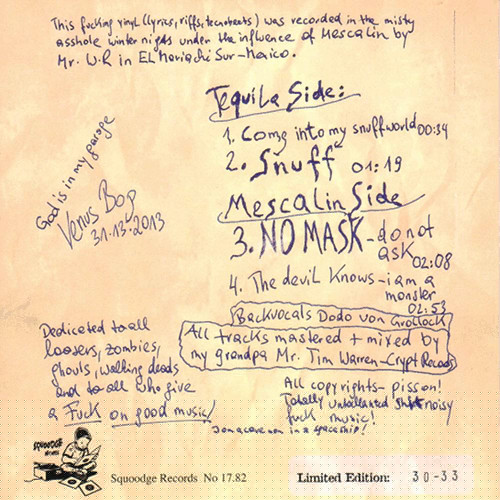 This fucking vinyl (lyrics, riffs, tecnobeats) was recorded in the misty
asshole winter nights under the influence of Mescalin by
Mr. U.R in EL Mariachi Sur-Mexico.
Tequila Side:
1. Come into my snuffworld 00:34
2. Snuff 01:19
Mescalin Side
3. NO MASK - do not
ask 02:08
4. The devil knows - i am a
monster
02:53
Backvocals Dodo von Grollock
All tracks mastered + mixed by
my grandpa Mr. Tim Warren - Crypt Records
God is in my garage
Venus Bop
31.13.2013
Dedicated to all
loosers, zombies,
ghouls, walking deads
and to all who give
a Fuck on good music!
All copyrights - piss on!
Totally unballanced shit noisy
fuck music!
I am a caveman in a spaceship!
SQUOODGE
RECORDS
Squoodge Records No 17.82
Limited Edition: 30-33